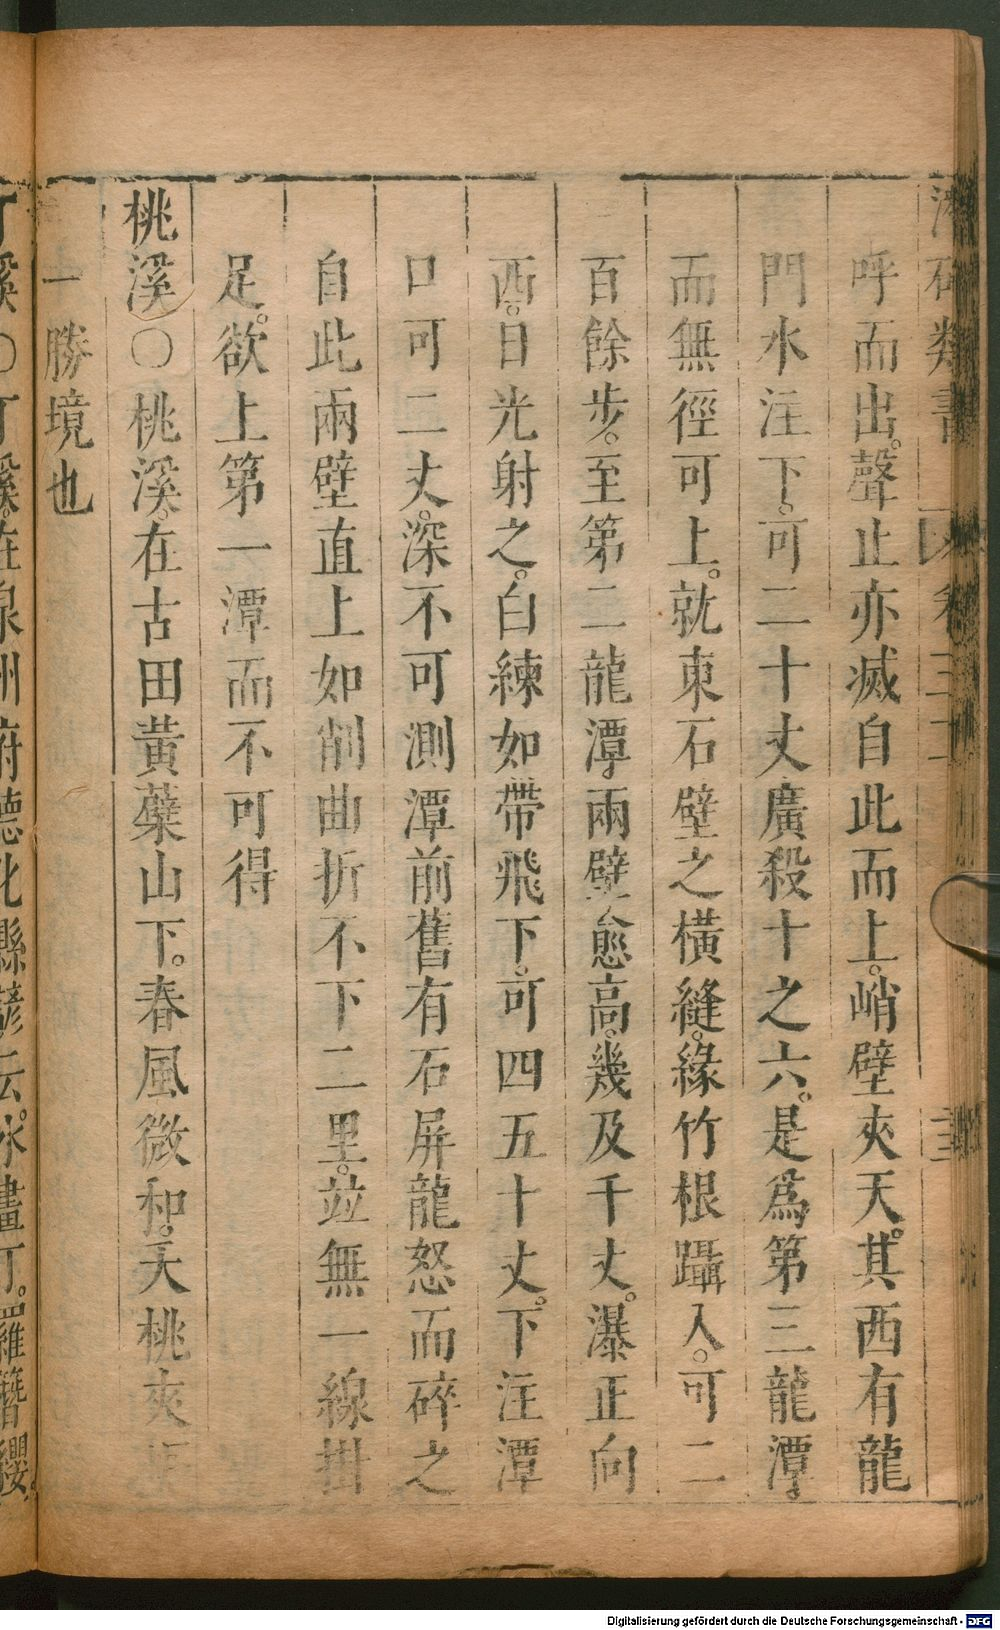 石類書
卷三十二
呼而出。聲止亦滅自此而上。峭壁夾天。其西有龍
門水注下。可二十丈廣殺十之六。是爲第三龍潭。
而無徑可上。就東石壁之橫縫。緣竹根躡入。可二
百餘步。至第二龍潭。兩壁愈高。幾及千丈。瀑正向
西。日光射之。白練如帶飛下。可四五十丈。下注潭
口可二丈。深不可測潭前舊有石屏龍怒而碎之
自此兩壁直上如削曲折不下二里。竝無一線掛
足。欲上第一潭而不可得
桃溪〇桃溪。在古田黃蘗山下。春風微和。夭桃夾
一勝境也
溪〇丁溪。在泉州府德化縣諺云。水畫丁。羅簪纓。
Digitalisierung gefördert durch die Deutsche Forschungsgemeinschaft - DFG